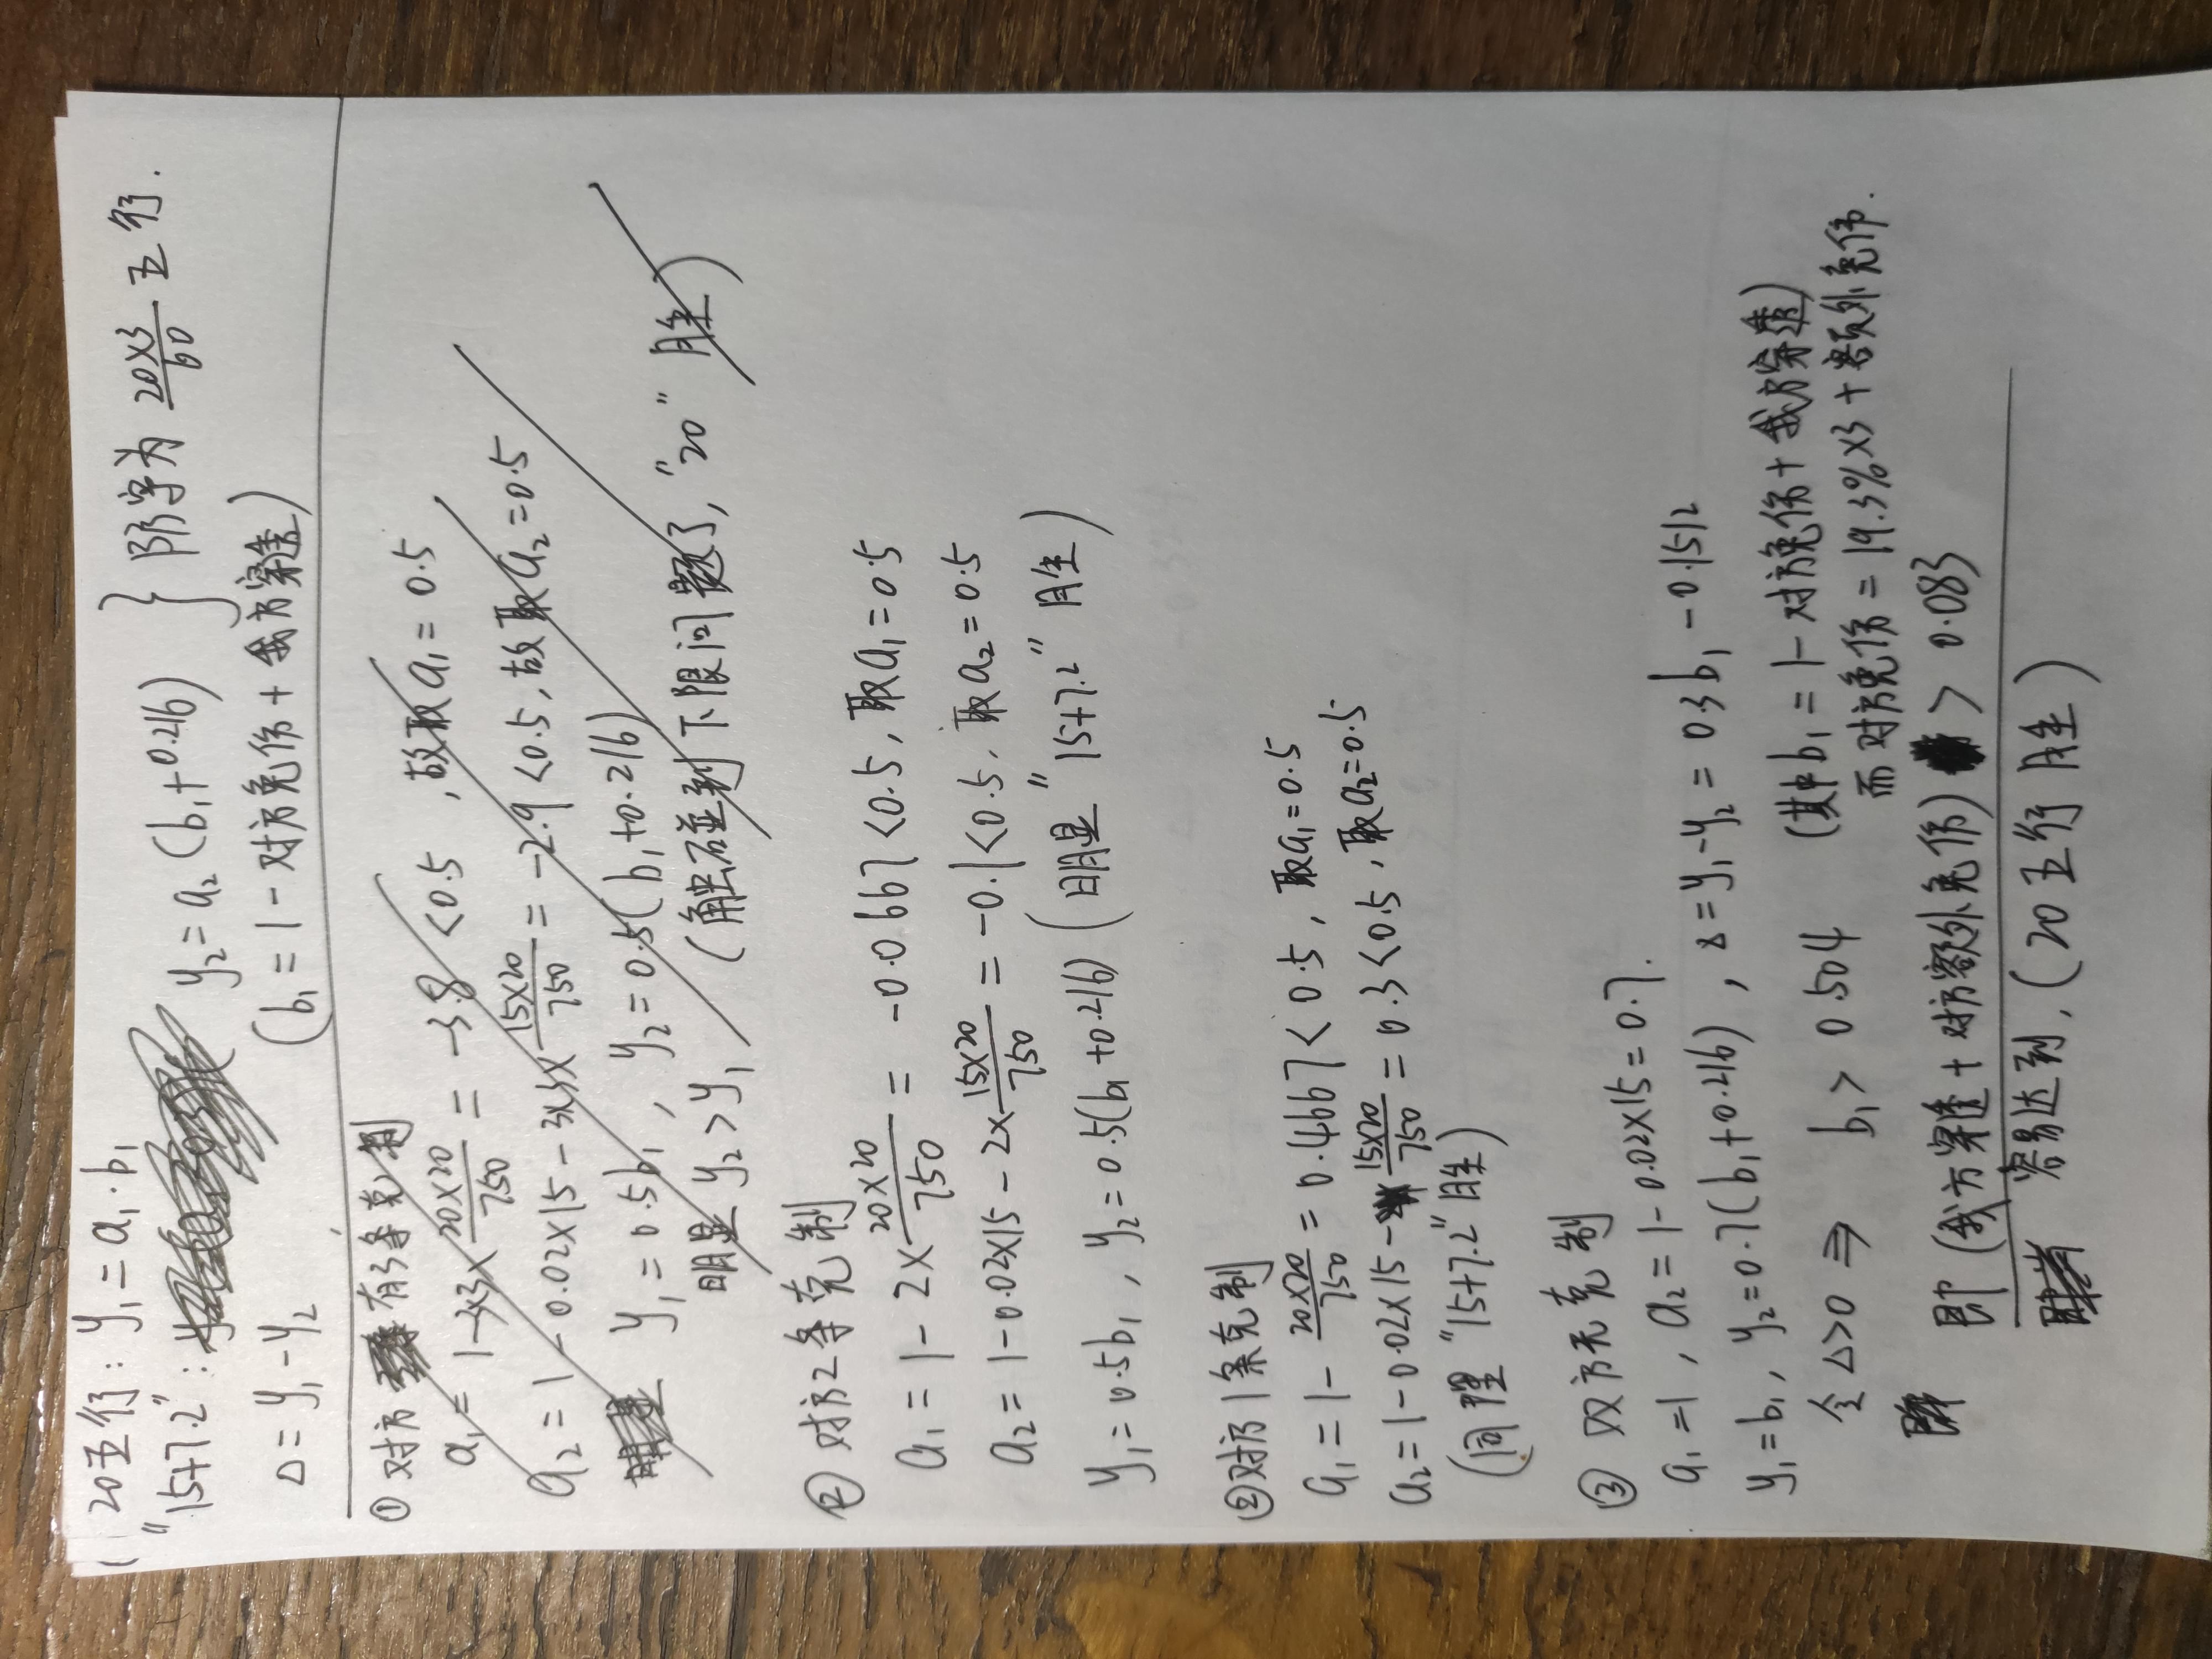 20五行: y₁ = a₁·b₁
"15+7.2": y₂ = a₂(b₁+0.216) } 防守为 20×3/60 五行.
Δ = y₁ - y₂ (b₁ = 1 - 对方免伤 + 我方穿透)
① 对方有3条克制
a₁ = 1 - 3×3× 20×20/750 = -3.8 < 0.5, 故取a₁ = 0.5
a₂ = 1 - 0.02×15 - 3×3× 15×20/750 = -2.9 < 0.5, 故取a₂ = 0.5
y₁ = 0.5b₁, y₂ = 0.5(b₁+0.216)
明显 y₂ > y₁ (触碰到下限问题了, "20" 胜)
② 对方2条克制
a₁ = 1 - 2× 20×20/750 = -0.0667 < 0.5, 取a₁ = 0.5
a₂ = 1 - 0.02×15 - 2× 15×20/750 = -0.1 < 0.5, 取a₂ = 0.5
y₁ = 0.5b₁, y₂ = 0.5(b₁+0.216) (明显 "15+7.2" 胜)
② 对方1条克制
a₁ = 1 - 20×20/750 = 0.4667 < 0.5, 取a₁ = 0.5
a₂ = 1 - 0.02×15 - 15×20/750 = 0.3 < 0.5, 取a₂ = 0.5
(同理 "15+7.2" 胜)
③ 双方无克制
a₁ = 1, a₂ = 1 - 0.02×15 = 0.7.
y₁ = b₁, y₂ = 0.7(b₁+0.216), Δ = y₁ - y₂ = 0.3b₁ - 0.1512
令 Δ>0 ⇒ b₁ > 0.504 (其中b₁ = 1 - 对方免伤 + 我方穿透)
而对方免伤 = 19.3%×3 + 额外免伤.
即 (我方穿透 + 对方额外免伤) > 0.083
容易达到, (20五行胜)